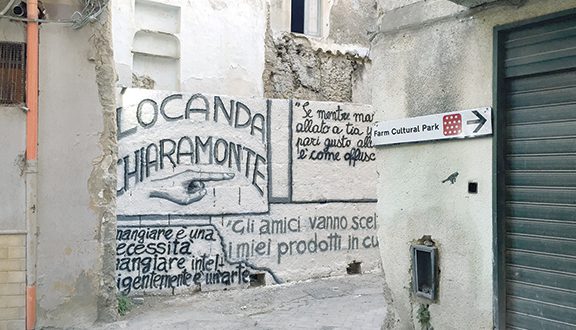 LOCANDA
CHIARAMONTE
"Se mentre
allato a tia
pari gusto
è come
Farm Cultural Park
mangiare è una
necessità
mangiare intel-
ligentemente è un'arte
"Gli amici vanno
i miei prodotti in